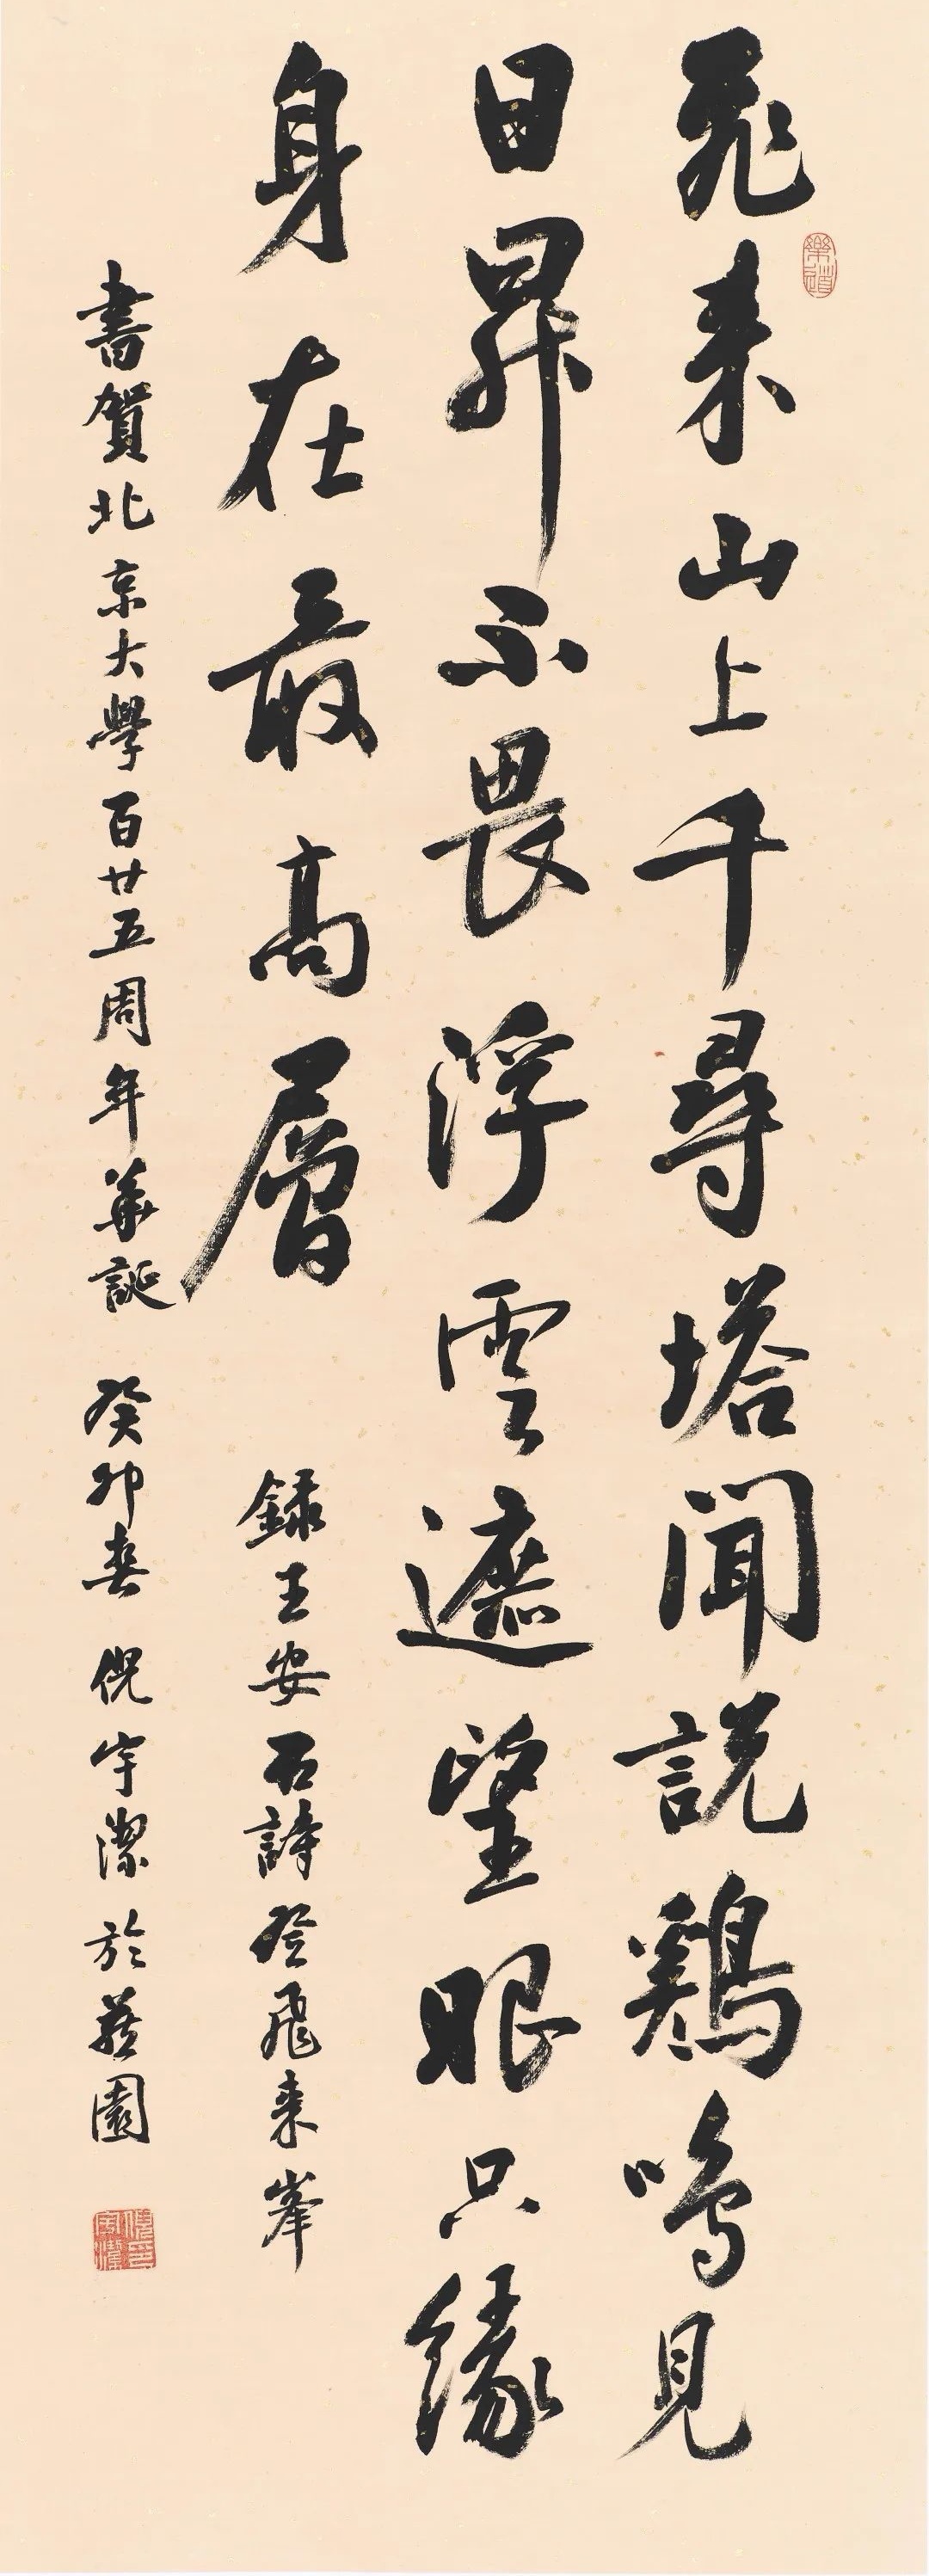 飛来山上千尋塔聞説鷄鳴見
日昇不畏浮雲遮望眼只緣
身在最高層
録王安石詩登飛来峯
書賀北京大學百廿五周年華誕 癸卯春 倪宇潔於燕園
樂道